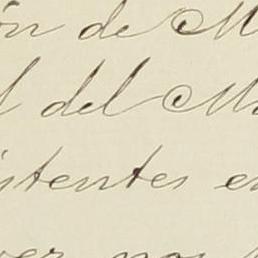 ón de M
l del M
istentes e
ver nos